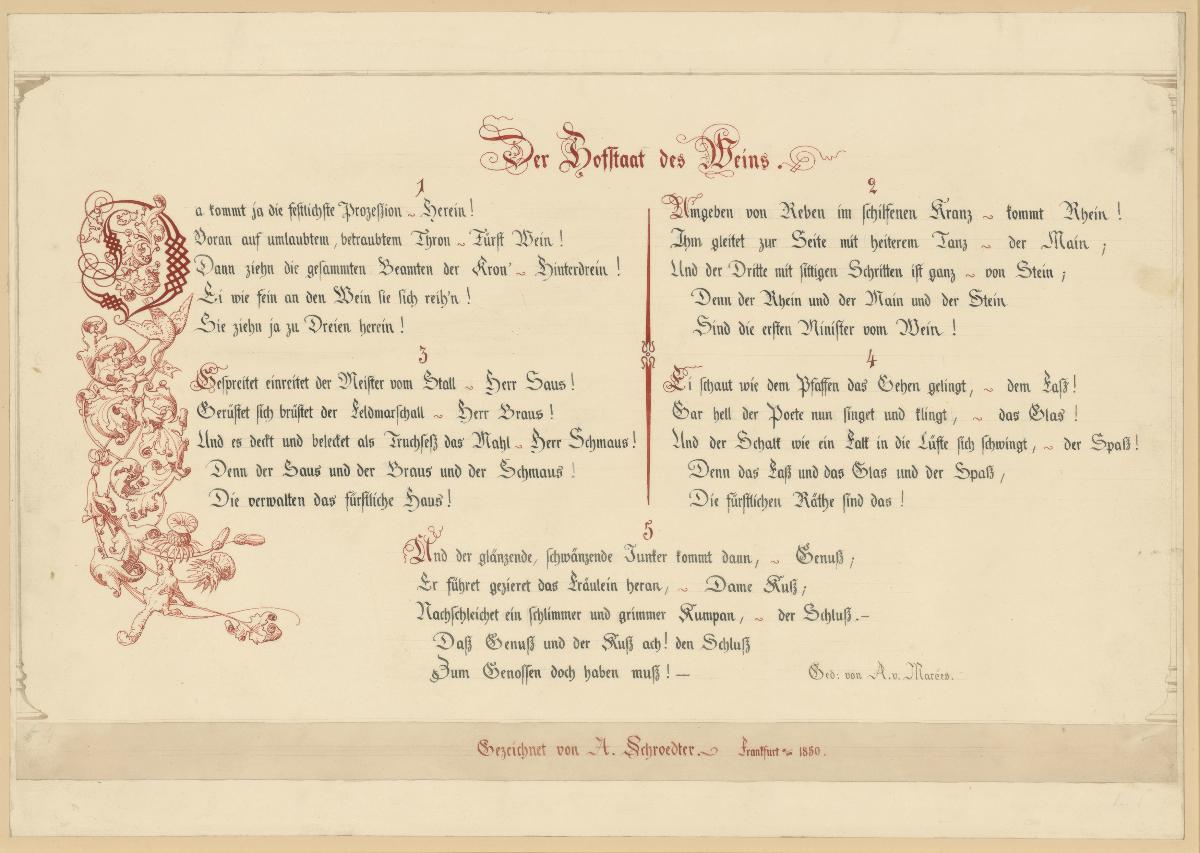 Der Hofstaat des Weins.
1
Da kommt ja die festlichste Prozession ~ Herein!
Voran auf umlaubtem, betraubtem Thron ~ Fürst Wein!
Dann ziehn die gesammten Beamten der Kron' ~ Hinterdrein!
Ei wie fein an den Wein sie sich reih'n!
Sie ziehn ja zu Dreien herein!
2
Umgeben von Reben im schilfenen Kranz ~ kommt Rhein!
Ihm gleitet zur Seite mit heiterem Tanz ~ der Main;
Und der Dritte mit sittigen Schritten ist ganz ~ von Stein;
Denn der Rhein und der Main und der Stein
Sind die ersten Minister vom Wein!
3
Gespreitet einreitet der Meister vom Stall ~ Herr Saus!
Gerüstet sich brüstet der Feldmarschall ~ Herr Braus!
Und es deckt und belecket als Truchseß das Mahl ~ Herr Schmaus!
Denn der Saus und der Braus und der Schmaus!
Die verwalten das fürstliche Haus!
4
Ei schaut wie dem Pfaffen das Gehen gelingt, ~ dem Faß!
Gar hell der Poete nun singet und klingt, ~ das Glas!
Und der Schalk wie ein Falk in die Lüfte sich schwingt, ~ der Spaß!
Denn das Faß und das Glas und der Spaß,
Die fürstlichen Räthe sind das!
5
Und der glänzende, schwänzende Junker kommt dann, ~ Genuß;
Er führet gezieret das Fräulein heran, ~ Dame Kuß;
Nachschleichet ein schlimmer und grimmer Kumpan, ~ der Schluß.—
Daß Genuß und der Kuß ach! den Schluß
Zum Genossen doch haben muß! —
Ged: von A. v. Marées.
Gezeichnet von A. Schroedter. ~ Frankfurt ~ 1850.